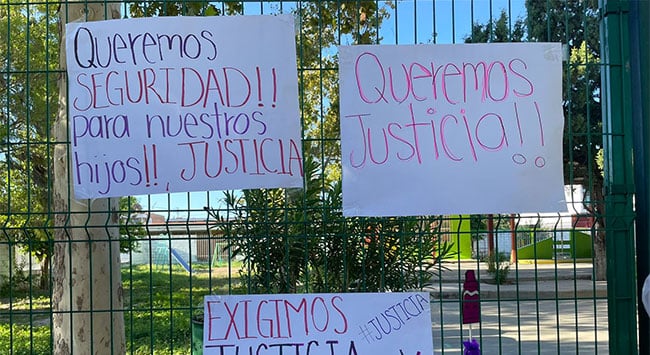 Queremos
SEGURIDAD!!
para nuestros
hijos!! JUSTICIA
Queremos
Justicia!!
EXIGIMOS
#JUSTICIA
JUSTICIA